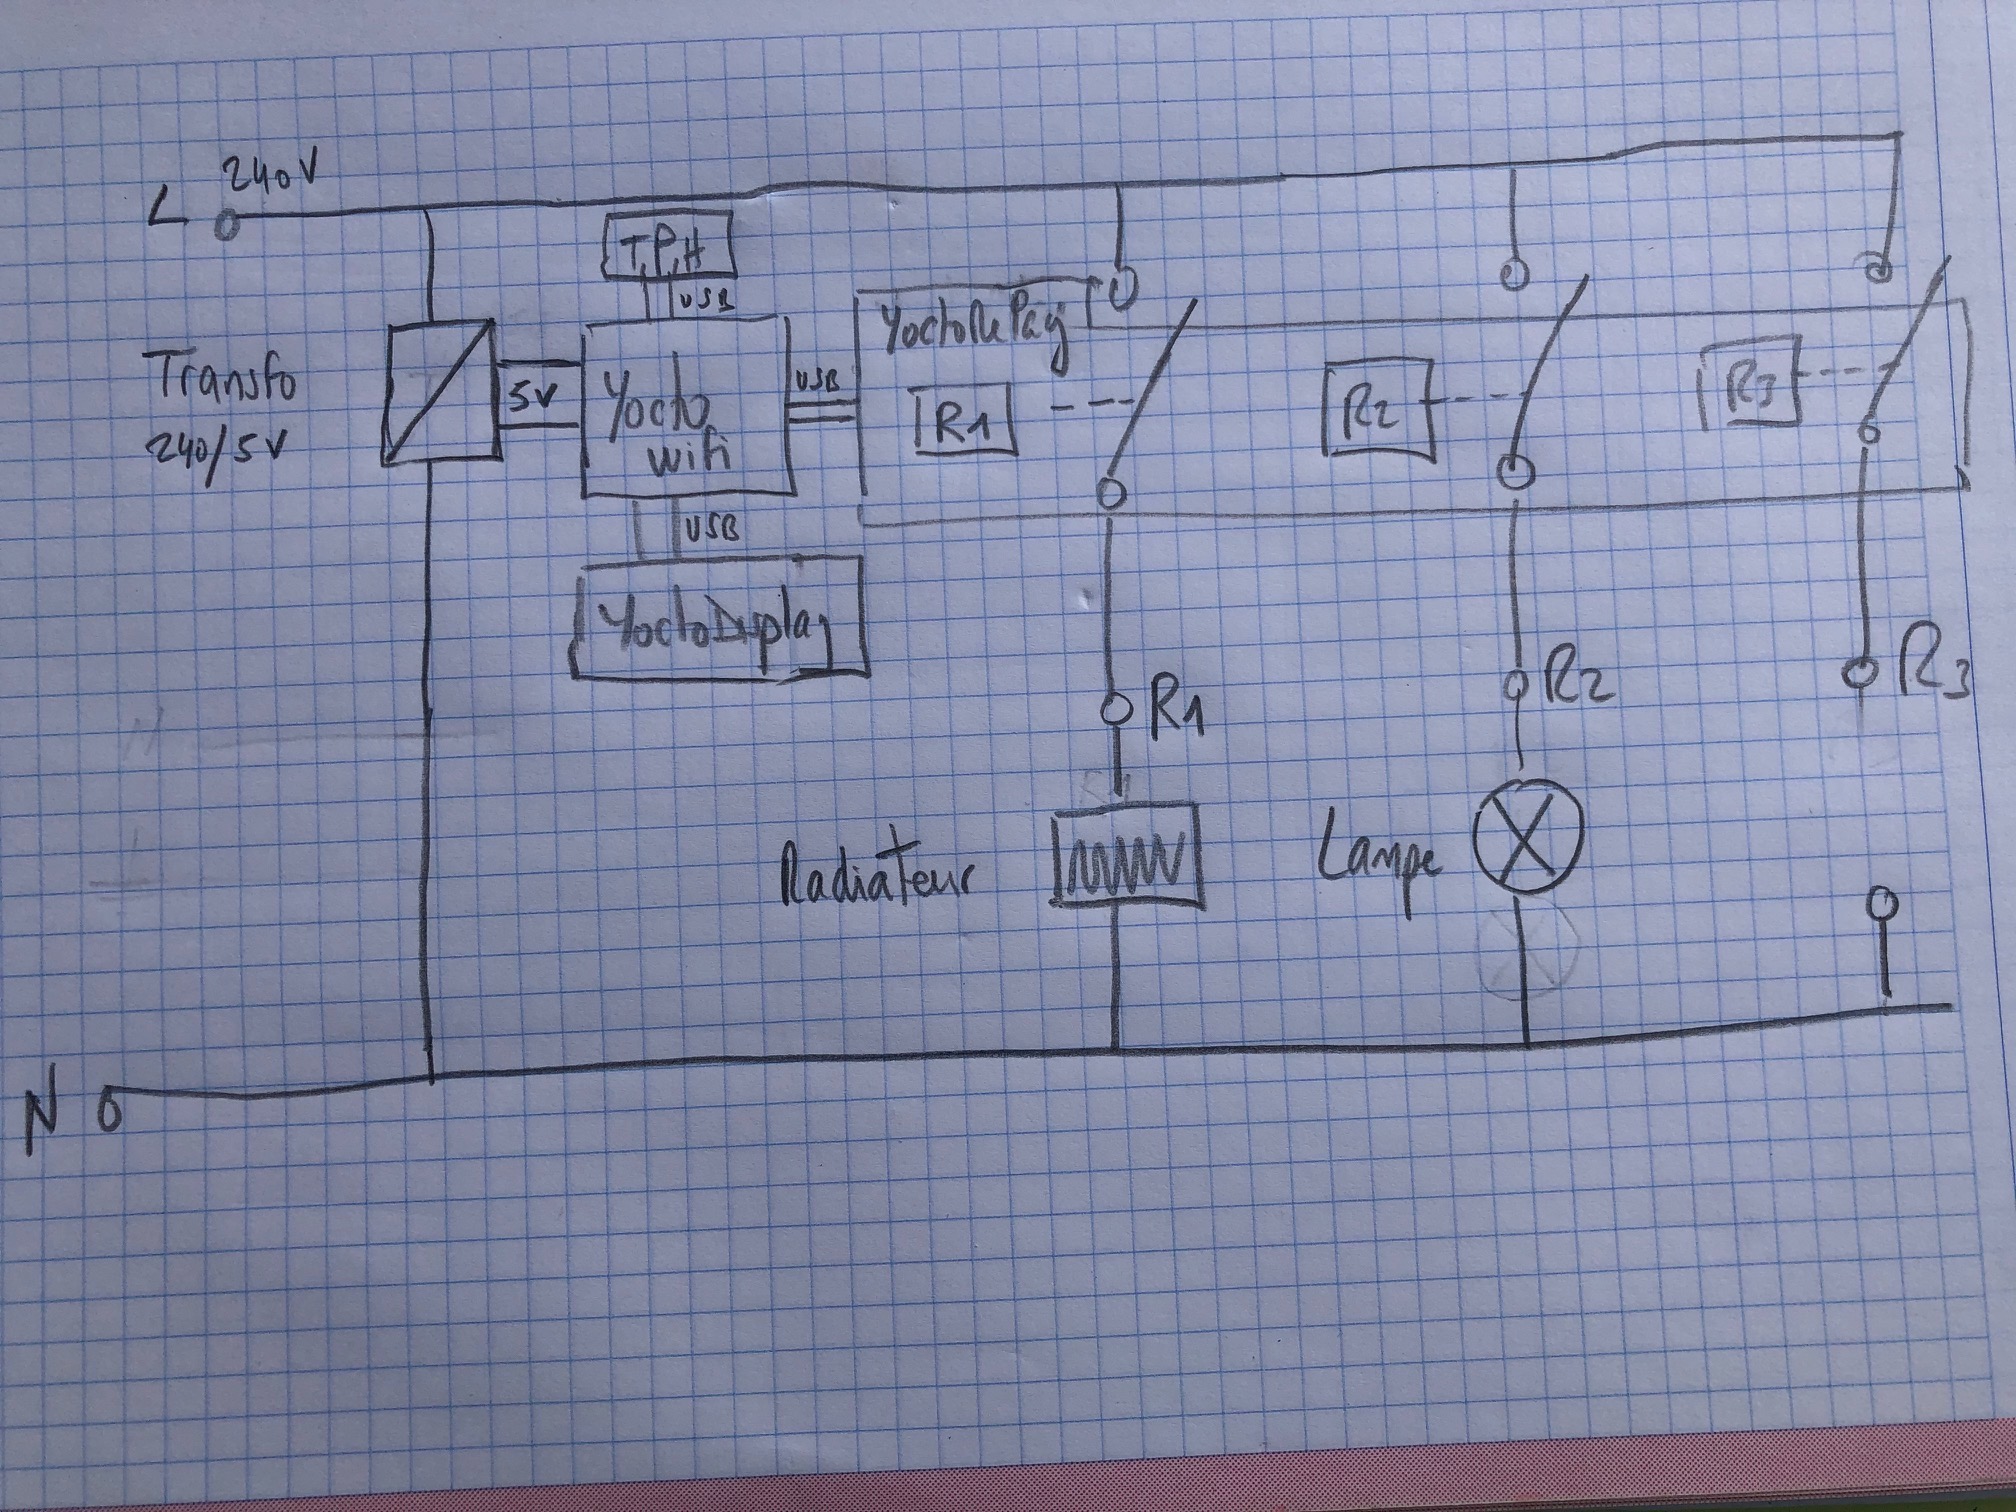 240V
L
T,P,H
USB
Transfo
240/5V
5V
Yocto
wifi
USB
YoctoRelay
R1
R2
R3
USB
YoctoDisplay
R1
R2
R3
Radiateur
Lampe
N